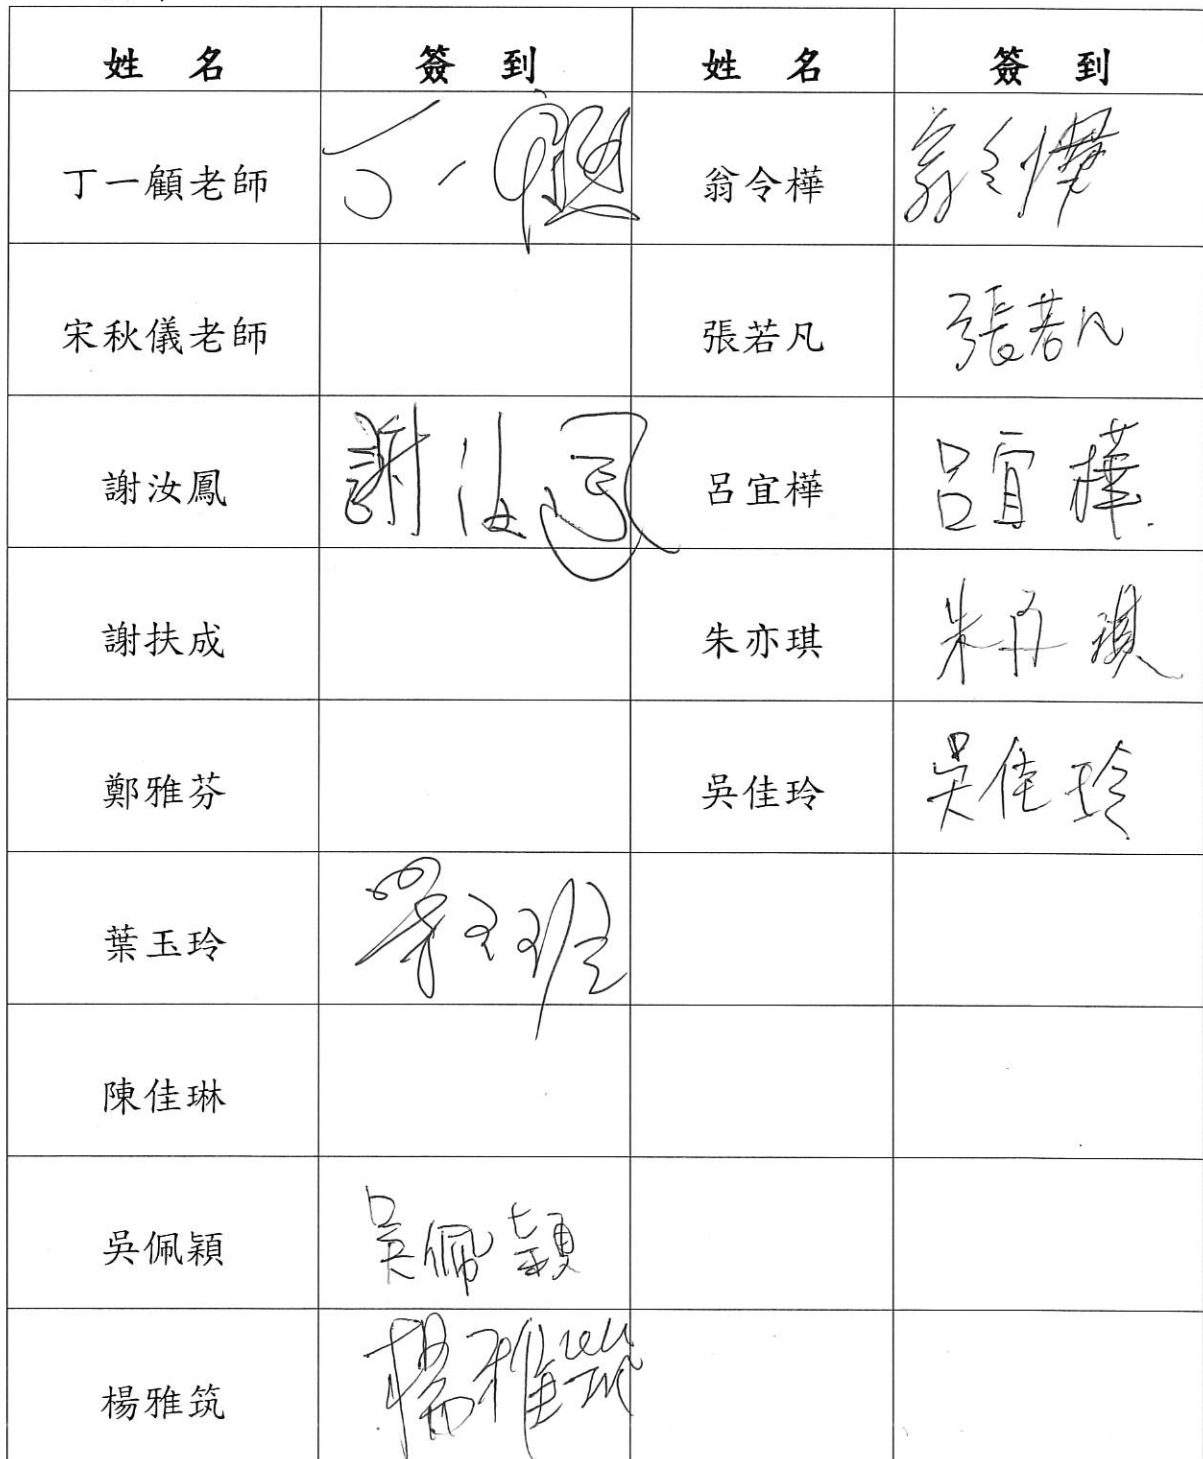 姓 名 簽 到 姓 名 簽 到
丁一顧老師 丁一顧 翁令樺 翁令樺
宋秋儀老師 張若凡 張若凡
謝汝鳳 謝汝鳳 呂宜樺 呂宜樺
謝扶成 朱亦琪 朱亦琪
鄭雅芬 吳佳玲 吳佳玲
葉玉玲 葉玉玲
陳佳琳
吳佩穎 吳佩穎
楊雅筑 楊雅筑